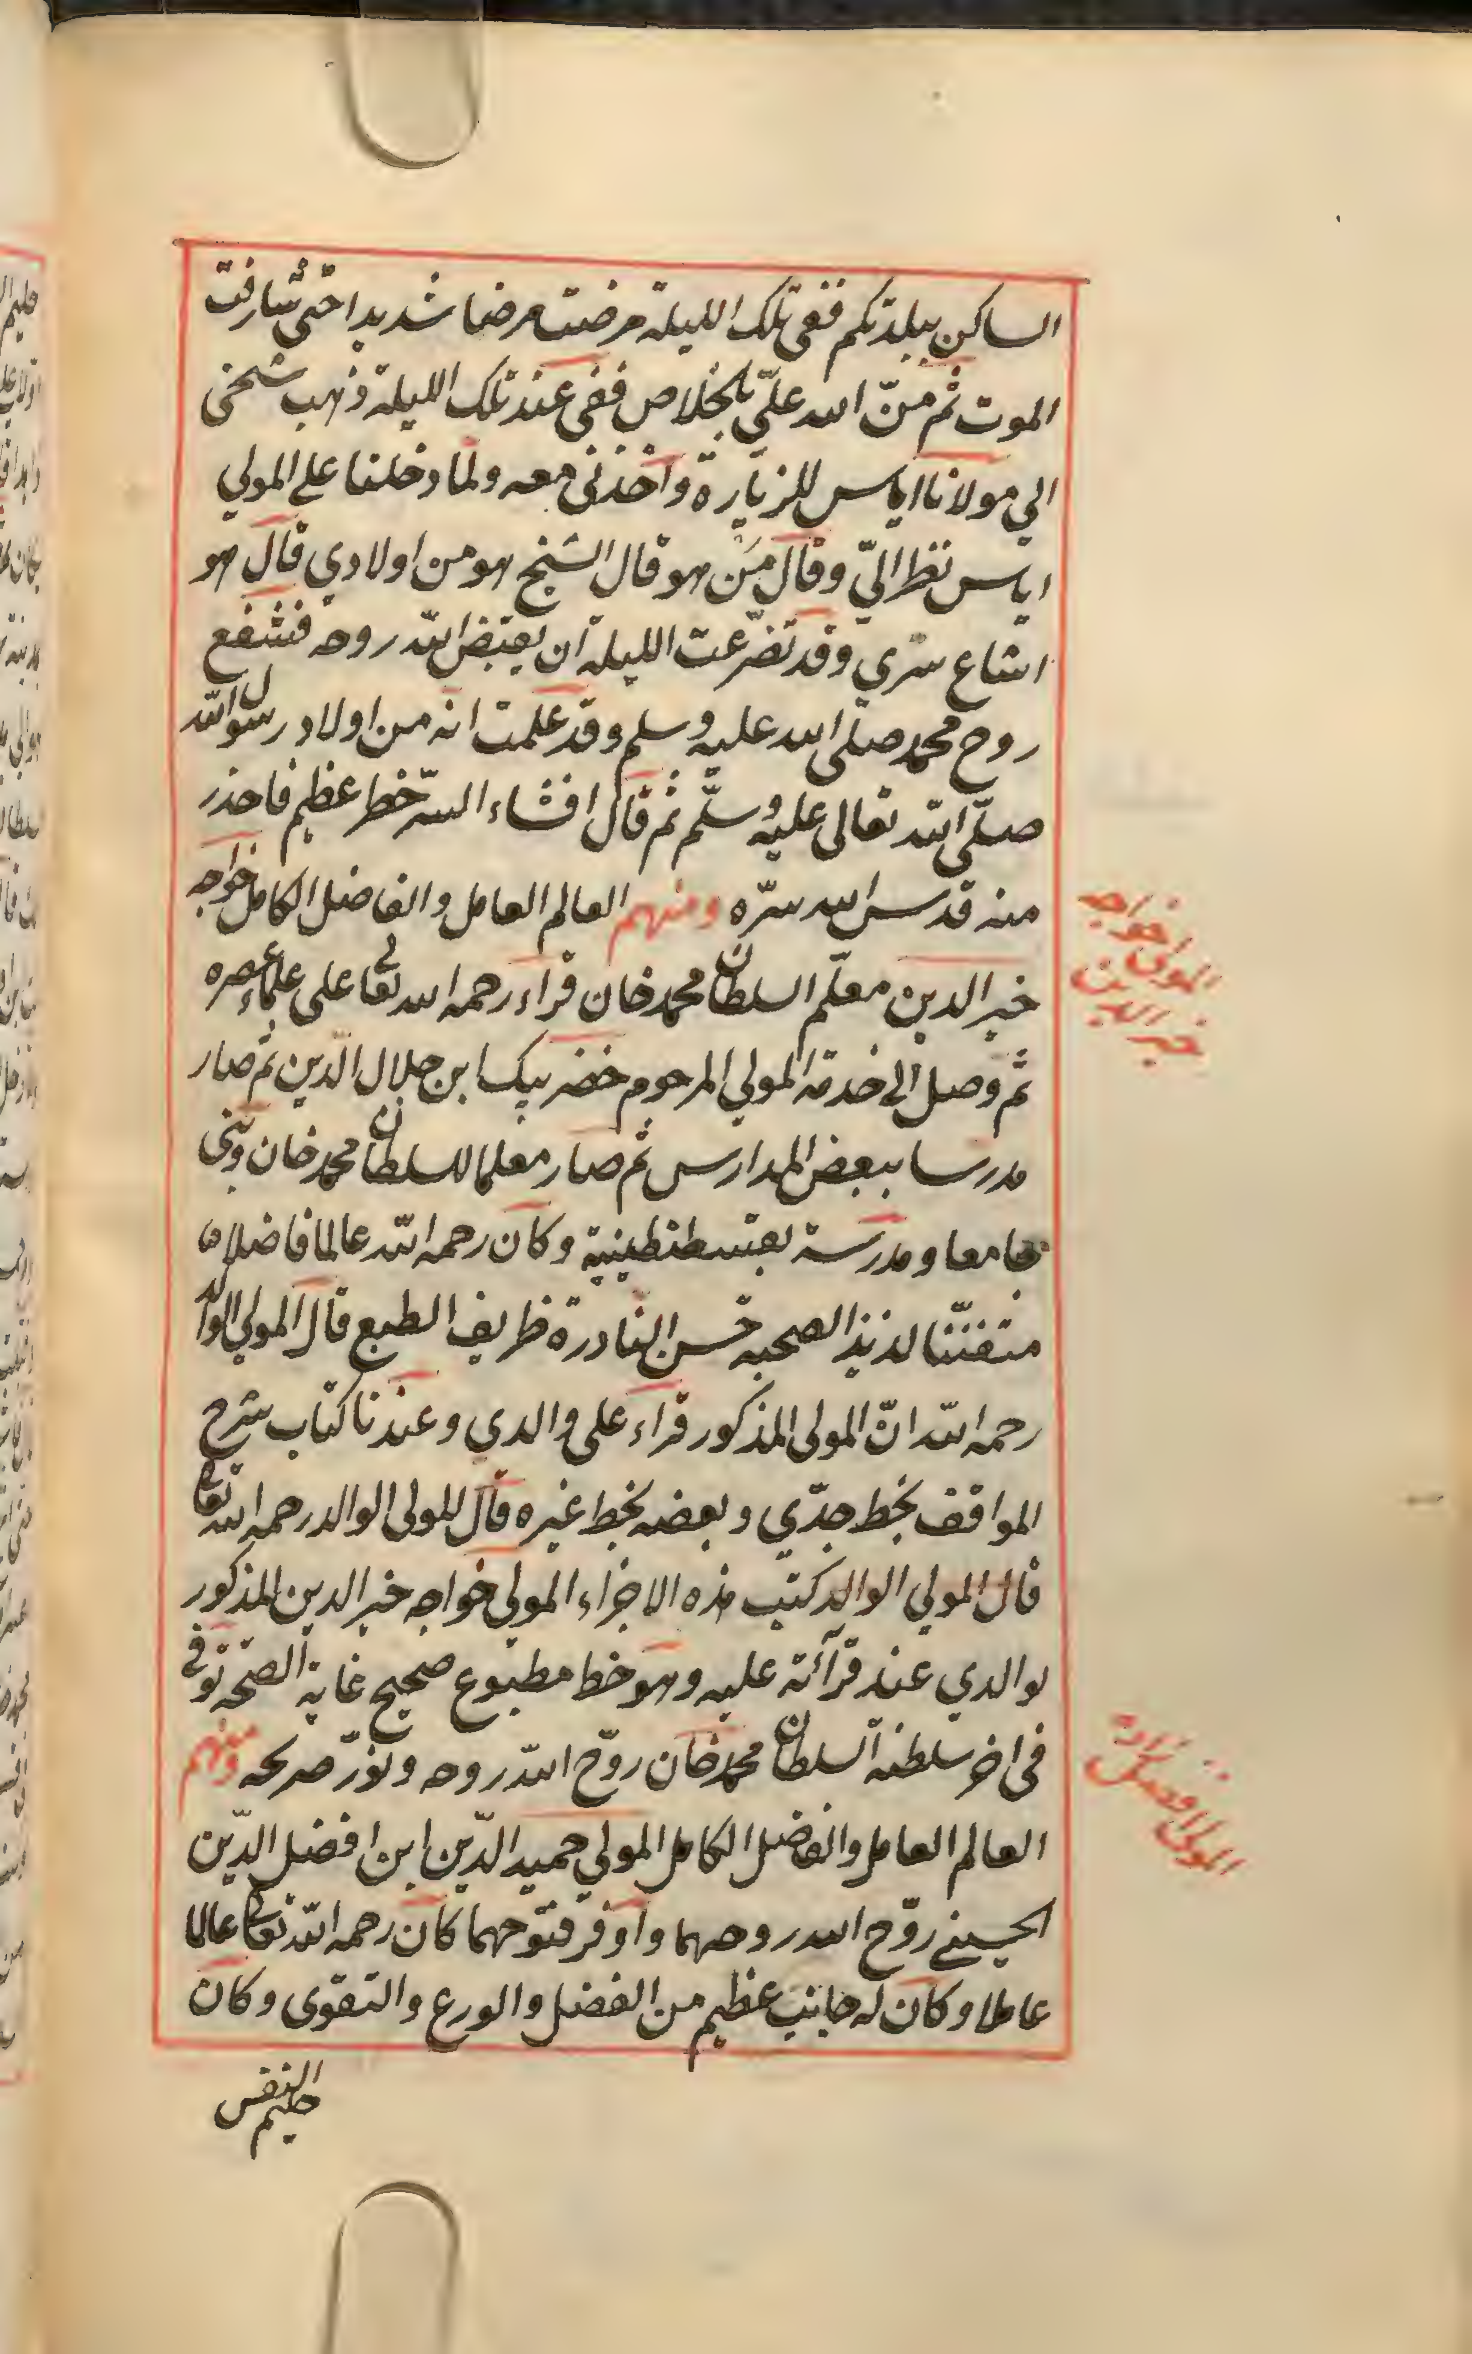 الساكن ببلدتكم ففى تلك الليلة مرضت مرضا شديدا حتى شارفت
الموت ثم منّ الله علىّ بالخلاص ففى عند تلك الليلة ذهب شيخى
الي مولانا اياس للزيارة وأخذنى معه ولما دخلنا على المولي
اياس نظر اليّ وقال من هو قال الشيخ هو من اولادي قال هو
اشاع سرّي وقد تضرّعت الليلة ان يقبض الله روحه فشفع
روح محمد صلى الله عليه وسلم وقد علمت انه من اولاد رسول الله
صلّى الله تعالى عليه وسلّم ثم قال افشاء السرّ خطر عظيم فاحذر
منه قدس الله سرّه ومنهم العالم العامل والفاضل الكامل خواجه
خير الدين معلّم السلطان محمد خان قراء رحمه الله تعالى على علماء عصره
ثم وصل الى خدمة المولي المرحوم خضر بيك ابن جلال الدّين ثم صار
مدرسا ببعض المدارس ثم صار معلما للسلطان محمد خان وبنى
جامعا ومدرسة بقسطنطينية وكان رحمه الله عالما فاضلا
متفنّنا لذيذ الصحبه حسن النادرة ظريف الطبع قال المولي الوالد
رحمه الله انّ المولى المذكور قراء على والدي وعندنا كتاب شرح
المواقف بخط جدّي وبعضه بخط غيره قال للمولى الوالد رحمه الله تعالى
قال المولي الوالد كتب هذه الاجزاء المولي خواجه خير الدين المذكور
لوالدي عند قرآئته عليه وهو خط مطبوع صحيح غاية الصّحة توفى
فى اخر سلطنة السلطان محمد خان روّح الله روحه ونوّر ضريحه ومنهم
العالم العامل والفاضل الكامل المولي حميد الدّين ابن افضل الدّين
الحسينى روّح الله روحهما واوفر فتوحهما كان رحمه الله تعالى عالما
عاملا وكان له جانب عظيم من الفضل والورع والتقوى وكان
حليم النفس
المولى خواجه
خير الدين
المولى افضل زاده